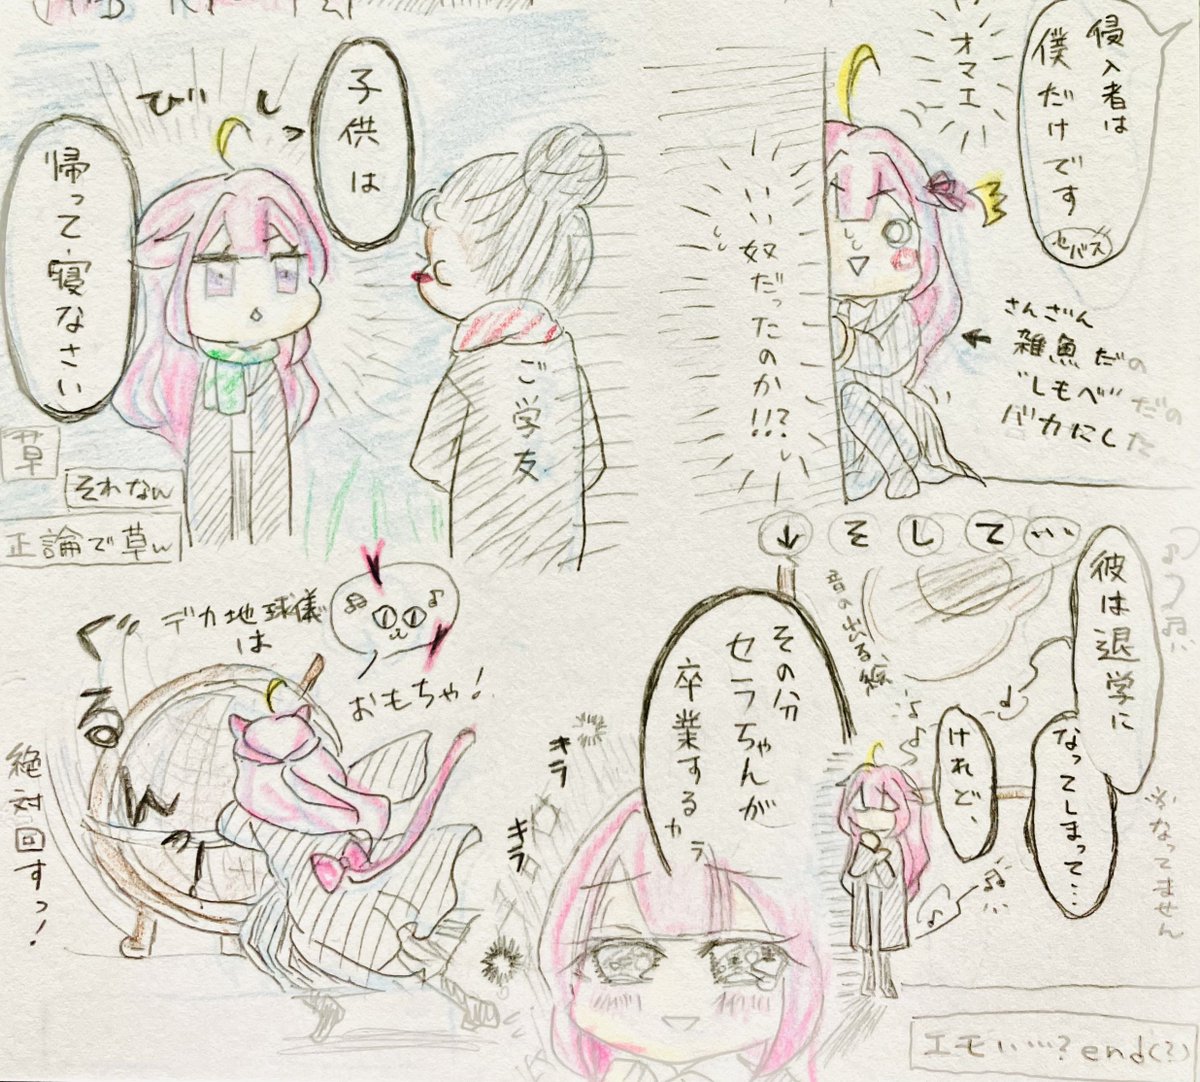 侵入者は
僕だけです
セバス
オマエ
奴だったのか!!?
さんざん
雑魚だの
"しもべ"だの
バカにした
びしっ
子供は
帰って寝なさい
ご学友
草
それなw
正論で草w
↓そして…
彼は退学に
なってしまって…
けれど、
※なってません
音の出る絵
その分
セラちゃんが
卒業するカラ
キラ
キラ
エモい…?end(?)
デカ地球儀
は
おもちゃ!
ぐるんっ!
絶対回すっ!